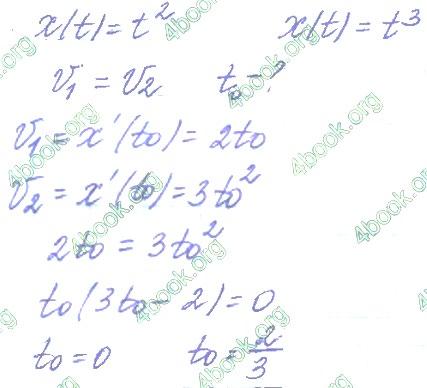 x(t) = t² x(t) = t³
v₁ = v₂ t₀ = ?
v₁ = x'(t₀) = 2t₀
v₂ = x'(t₀) = 3t₀²
2t₀ = 3t₀²
t₀(3t₀ - 2) = 0
t₀ = 0 t₀ = 2/3
4book.org
4book.org
4book.org
4book.org
4book.org
4book.org
4book.org